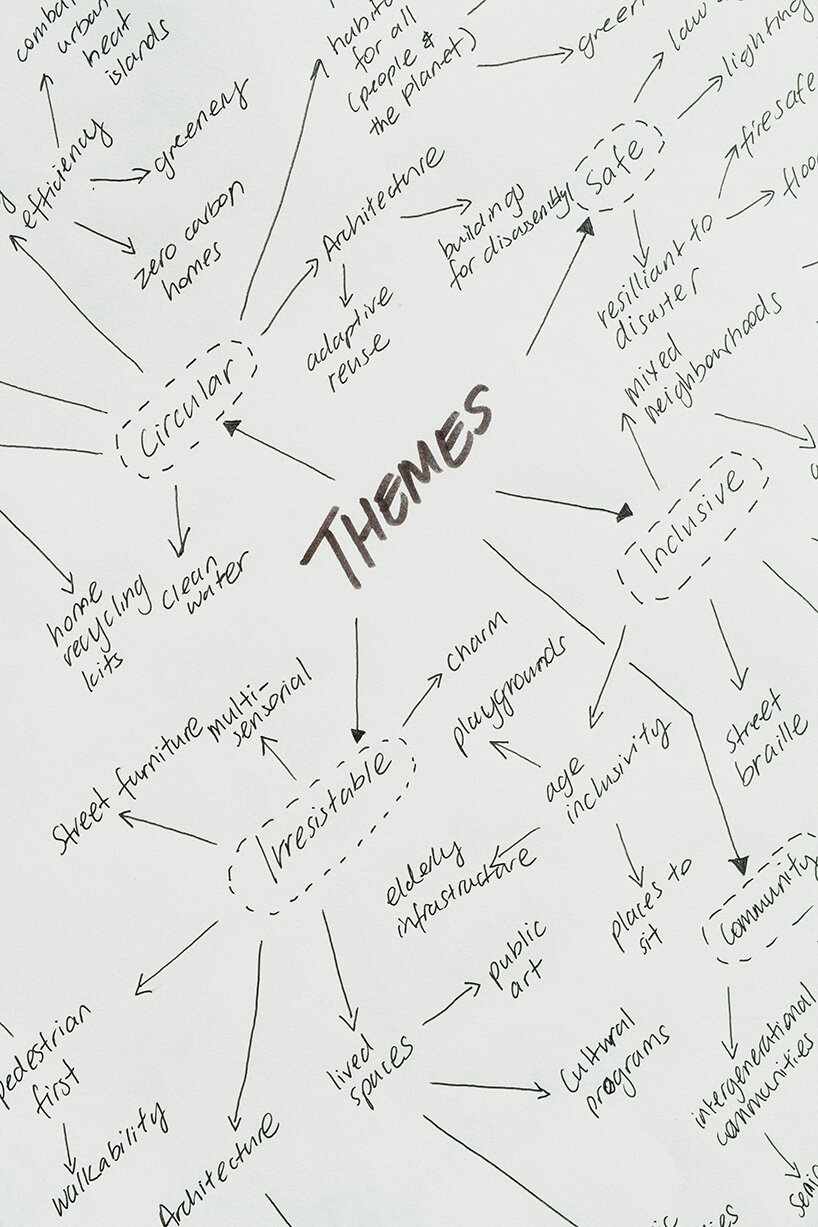 urban
heat
islands
efficiency
greenery
zero carbon
homes
for all
(people &
the planet)
Architecture
buildings
for disassembly
adaptive
reuse
Safe
lighting
firesafe
resilliant to
disaster
mixed
neighbourhoods
Circular
THEMES
Inclusive
home
recycling
kits
clean
water
charm
multi-
senserial
street furniture
Irresistable
playgrounds
age
inclusivity
street
braille
elderly
infrastructure
places to
sit
Community
public
art
lived
spaces
Cultural
programs
intergenerational
communities
pedestrian
first
walkability
Architecture